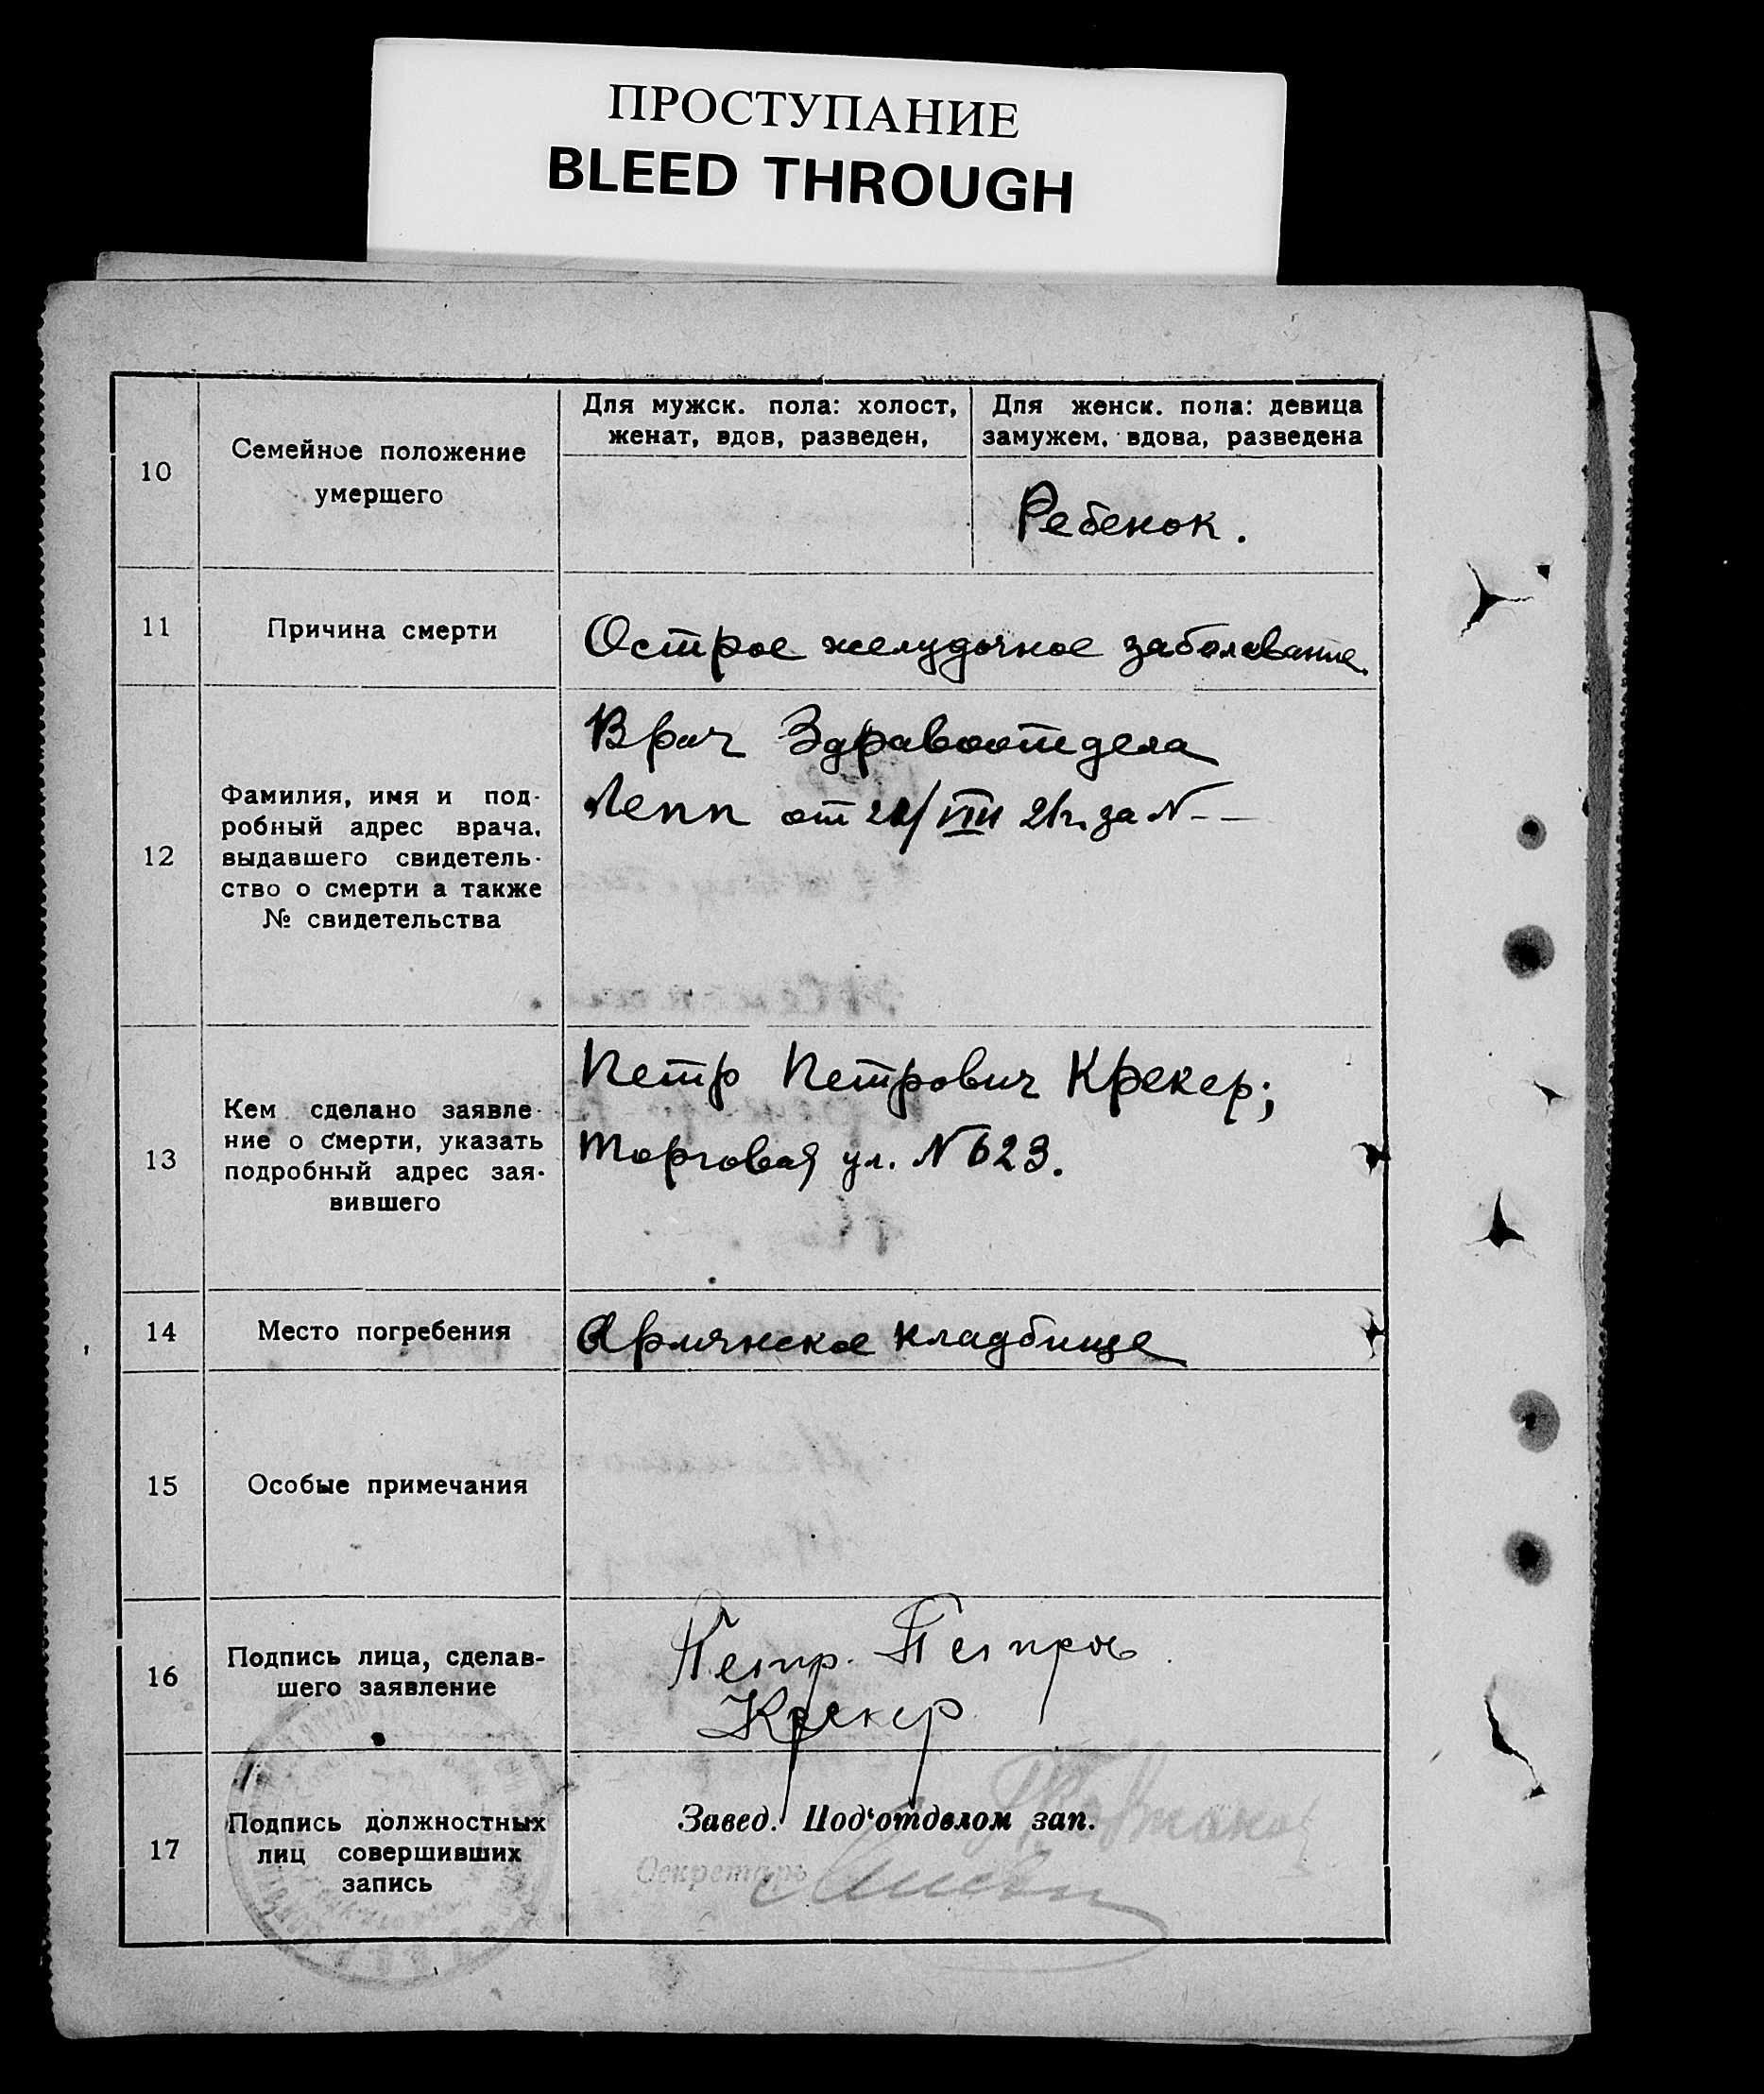 ПРОСТУПАНИЕ
BLEED THROUGH
10
Семейное положение
умершего
Для мужск. пола: холост,
женат, вдов, разведен,
Для женск. пола: девица
замужем, вдова, разведена
Ребенок.
11
Причина смерти
Острое желудочное заболевание.
12
Фамилия, имя и под-
робный адрес врача,
выдавшего свидетель-
ство о смерти а также
№ свидетельства
Врач Здравоотдела
Лепп от VIII 21г. за N--
13
Кем сделано заявле-
ние о смерти, указать
подробный адрес зая-
вившего
Петр Петрович Крекер;
Торговая ул. N 623.
14
Место погребения
Армянское кладбище
15
Особые примечания
16
Подпись лица, сделав-
шего заявление
Петр. Петров
Крекер
17
Подпись должностных
лиц совершивших
запись
Завед. Под'отделом зап.
Секретарь